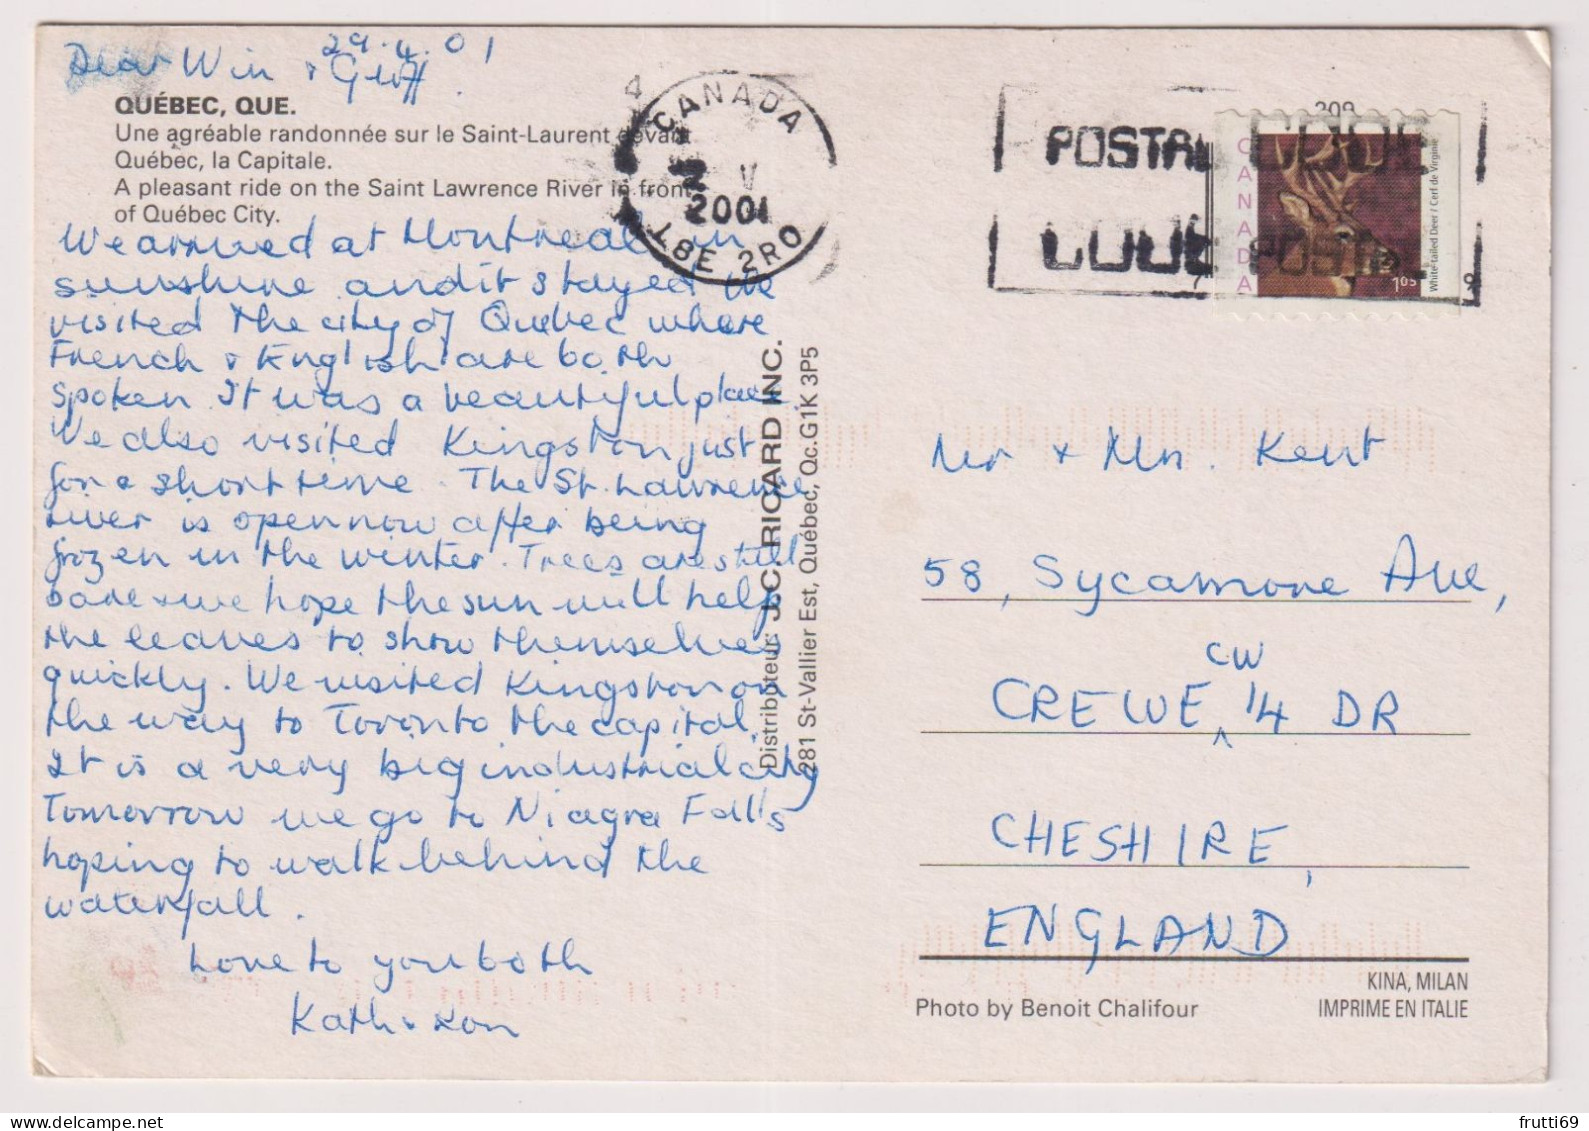 29.4.01
Dear Win + Geoff.
QUÉBEC, QUE.
Une agréable randonnée sur le Saint-Laurent devant
Québec, la Capitale.
A pleasant ride on the Saint Lawrence River in front
of Québec City.
We arrived at Montreal in
sunshine and it stayed. We
visited the city of Quebec where
French & English are both
spoken. It was a beautiful place.
We also visited Kingston just
for a short time. The St. Lawrence
river is open now after being
frozen in the winter. Trees are still
bare & we hope the sun will help
the leaves to show themselves
quickly. We visited Kingston on
the way to Toronto the capital.
It is a very big industrial city
Tomorrow we go to Niagra Falls
hoping to walk behind the
waterfall.
Love to you both
Kath & Ron
CANADA
V
2001
L8E 2R0
POSTAL CODE
CODE POSTAL
CANADA
White-tailed Deer / Cerf de Virginie
1.05
Distributeur: J.C. RICARD INC.
281 St-Vallier Est, Québec, Qc. G1K 3P5
Mr + Mrs. Kent
58, Sycamore Ave,
CW
CREWE ^ 14 DR
CHESHIRE,
ENGLAND
KINA, MILAN
IMPRIME EN ITALIE
Photo by Benoit Chalifour
frutti69